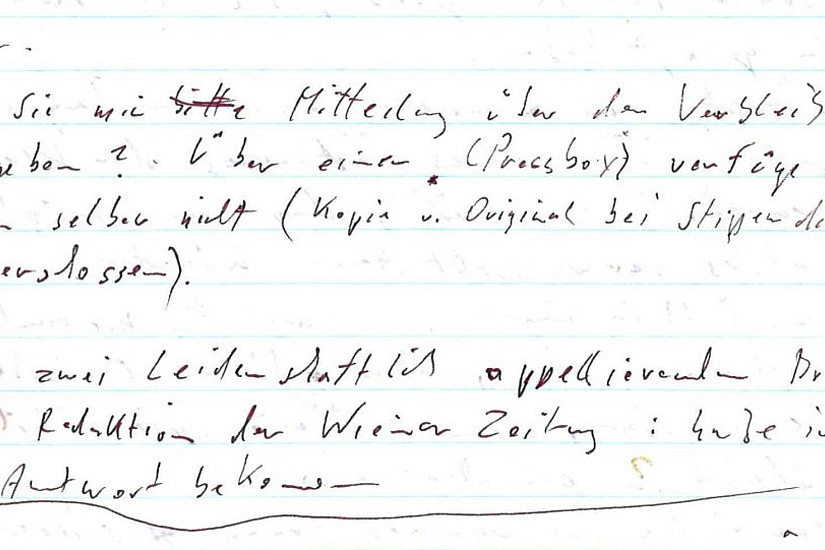 Sie mir bitte Mitteilung über den Vergleich
geben ?. Über einen (Pressbox) verfüge
selber nicht (Kopie u. Original bei Stipenda
verschlossen).
zwei leidenschaftlich appellierenden Br
Redaktion der Wiener Zeitung : habe
Antwort bekommen